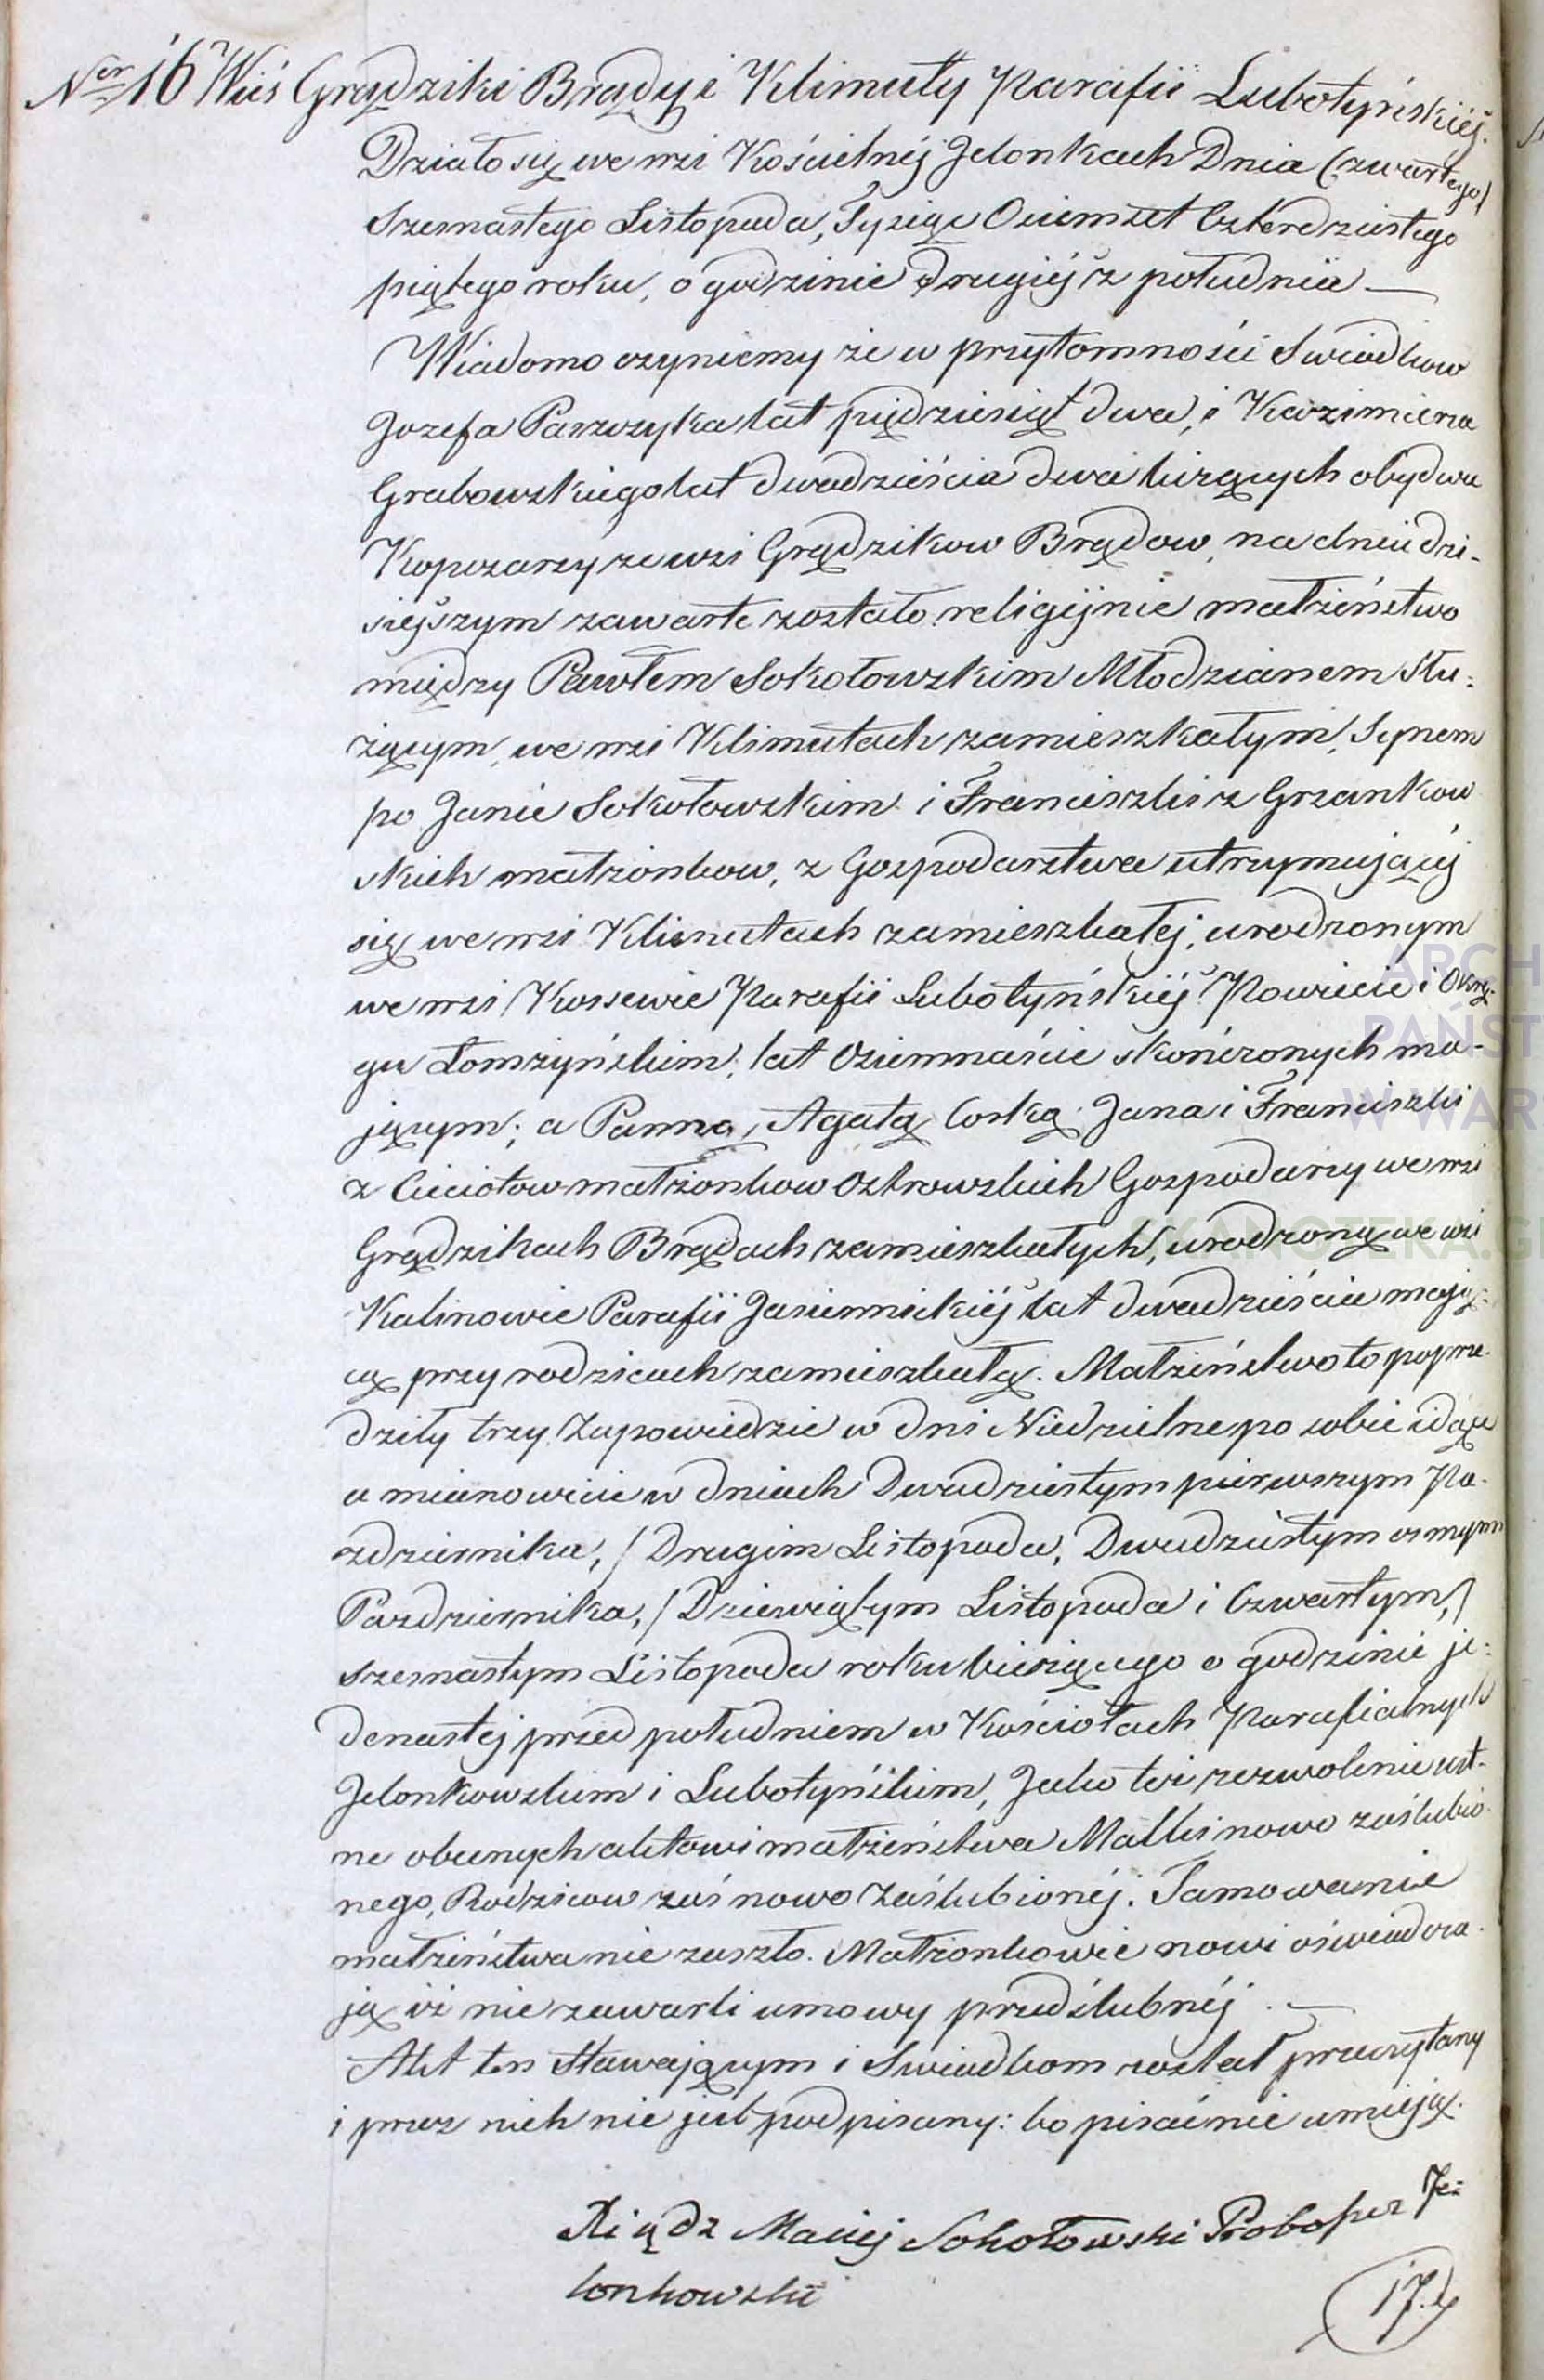 Ner 16 Wieś Grądziki Brądy i Klimuty Parafii Lubotyńskiéj.
Działo się we wsi Kościelnéj Jelonkach Dnia (czwartego)
Szesnastego Listopada, Tysiąc Osiemset Czterdziestego
piątego roku, o godzinie drugiéj z południa —
Wiadomo czyniemy że w przytomności Swiadkow
Jozefa Paszczyka lat piędziesiąt dwa, i Kazimierza
Grabowskiego lat dwadzieścia dwa liczących obydwu
Kopczarzy ze wsi Grądzikow Brądow, na dniu dzi-
siejszym zawarte zostało religijnie małżeństwo
między Pawłem Sokołowskim Młodzianem Słu-
żącym, we wsi Klimutach zamieszkałym, Synem
po Janie Sokołowskim i Franciszki z Grzankow
skich małżonkow, z Gospodarstwa utrzymującéj
się we wsi Klimutach zamieszkałej, urodzonym
we wsi Kossewie Parafii Lubotyńskiéj Powiecie i Okrę-
gu Łomżyńskim, lat Osiemnaście skończonych ma-
jącym; a Panną, Agatą Corką Jana i Franciszki
z Cieciołow małżonkow Ostrowskich Gospodarzy we wsi
Grądzikach Brądach zamieszkałych, urodzoną we wsi
Kalinowie Parafii Jasiennickiéj lat dwadzieścia mają-
cą przy rodzicach zamieszkałą. Małżeństwo to poprze-
dziły trzy Zapowiedzie w dni Niedzielne po sobie idące
a mianowicie w dniach Dwudziestym pierwszym Pa-
zdziernika, / Drugim Listopada, Dwudziestym osmym
Pazdziernika, / Dziewiątym Listopada i Czwartym, /
szesnastym Listopada roku bieżącego o godzinie je-
denastej przed południem w Kościołach Parafialnych
Jelonkowskim i Lubotyńskim, Jako też zezwolenie ust-
ne obecnych aktowi małżeństwa Matki nowo zaślubio-
nego, Rodzicow zaś nowo Zaślubionéj. Tamowanie
małżeństwa nie zaszło. Małżonkowie nowi oświadcza-
ją iż nie zawarli umowy przedślubnéj. —
Akt ten stawającym i Swiadkom został przeczytany
i przez nich nie jest podpisany: bo pisać nie umieją.
Xiądz Maciej Sokołowski Proboszcz Je-
lonkowski
17.
ARCH
PAŃST
W WAR
SKANOTEKA.G